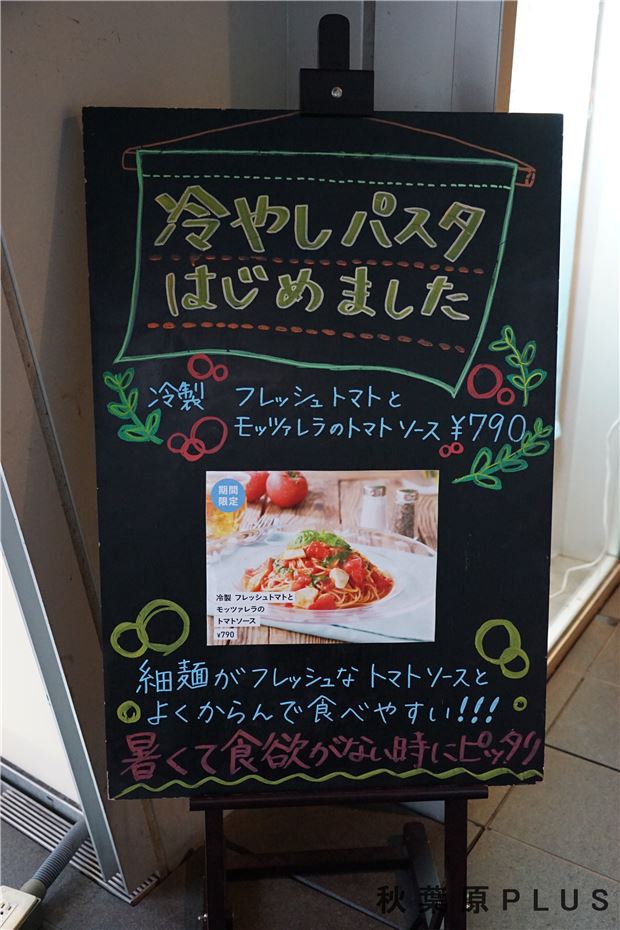 冷やしパスタ
はじめました
冷製 フレッシュトマトと
モッツァレラのトマトソース ¥790
期間
限定
冷製 フレッシュトマトと
モッツァレラの
トマトソース
¥790
細麺がフレッシュなトマトソースと
よくからんで食べやすい!!!
暑くて食欲がない時にピッタリ
秋葉原PLUS